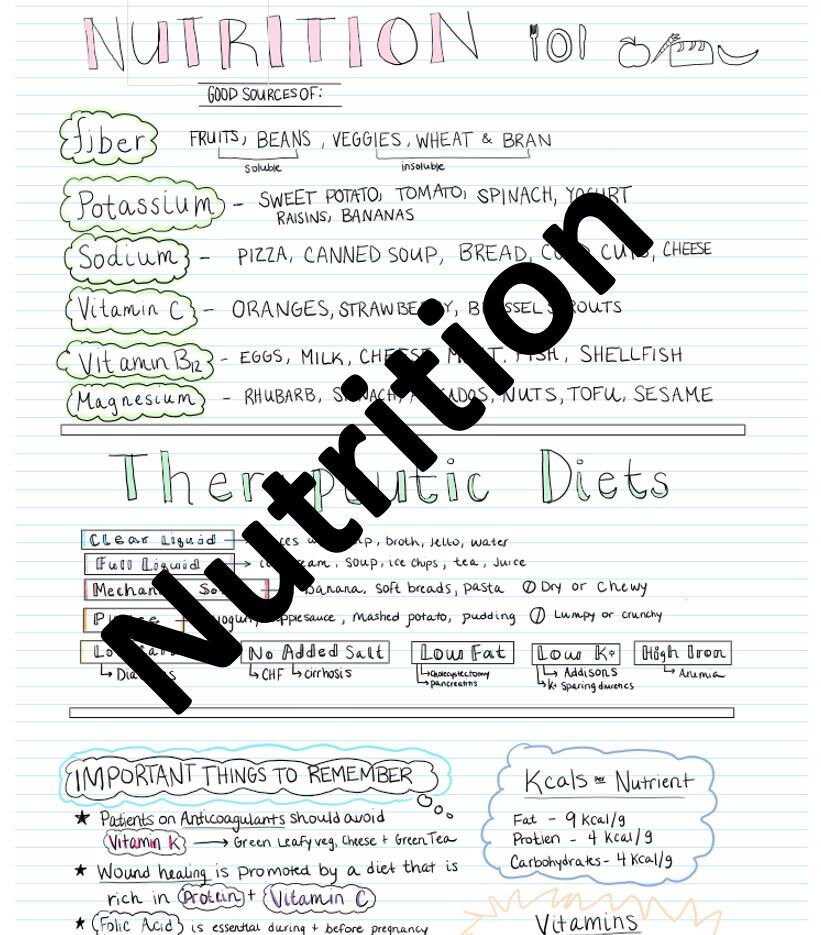 NUTRITION
GOOD SOURCES OF:
fiber FRUITS, BEANS, VEGGIES, WHEAT & BRAN
soluble insoluble
Potassium - SWEET POTATO, TOMATO, SPINACH, YOGURT
RAISINS, BANANAS
Sodium - PIZZA, CANNED SOUP, BREAD, COLD CUTS, CHEESE
Vitamin C - ORANGES, STRAWBERRY, BRUSSEL SPROUTS
Vitamin B12 - EGGS, MILK, CHEESE, MEAT, FISH, SHELLFISH
Magnesium - RHUBARB, SPINACH, AVOCADOS, NUTS, TOFU, SESAME
Nutrition
Therapeutic Diets
Clear Liquid broth, Jello, water
Full Liquid soup, ice chips, tea, Juice
Mechanical Soft banana, soft breads, pasta Dry or Chewy
yogurt, applesauce, mashed potato, pudding Lumpy or crunchy
No Added Salt Low Fat Low K+ High Iron
CHF cirrhosis Cholecystectomy Addisons Anemia
pancreatitis K+ Sparing diuretics
IMPORTANT THINGS TO REMEMBER
★ Patients on Anticoagulants should avoid
Vitamin K → Green Leafy veg, Cheese + Green Tea
★ Wound healing is promoted by a diet that is
rich in Protein + Vitamin C
★ Folic Acid is essential during + before pregnancy
Kcals per Nutrient
Fat - 9 Kcal/g
Protien - 4 Kcal/g
Carbohydrates - 4 Kcal/g
Vitamins